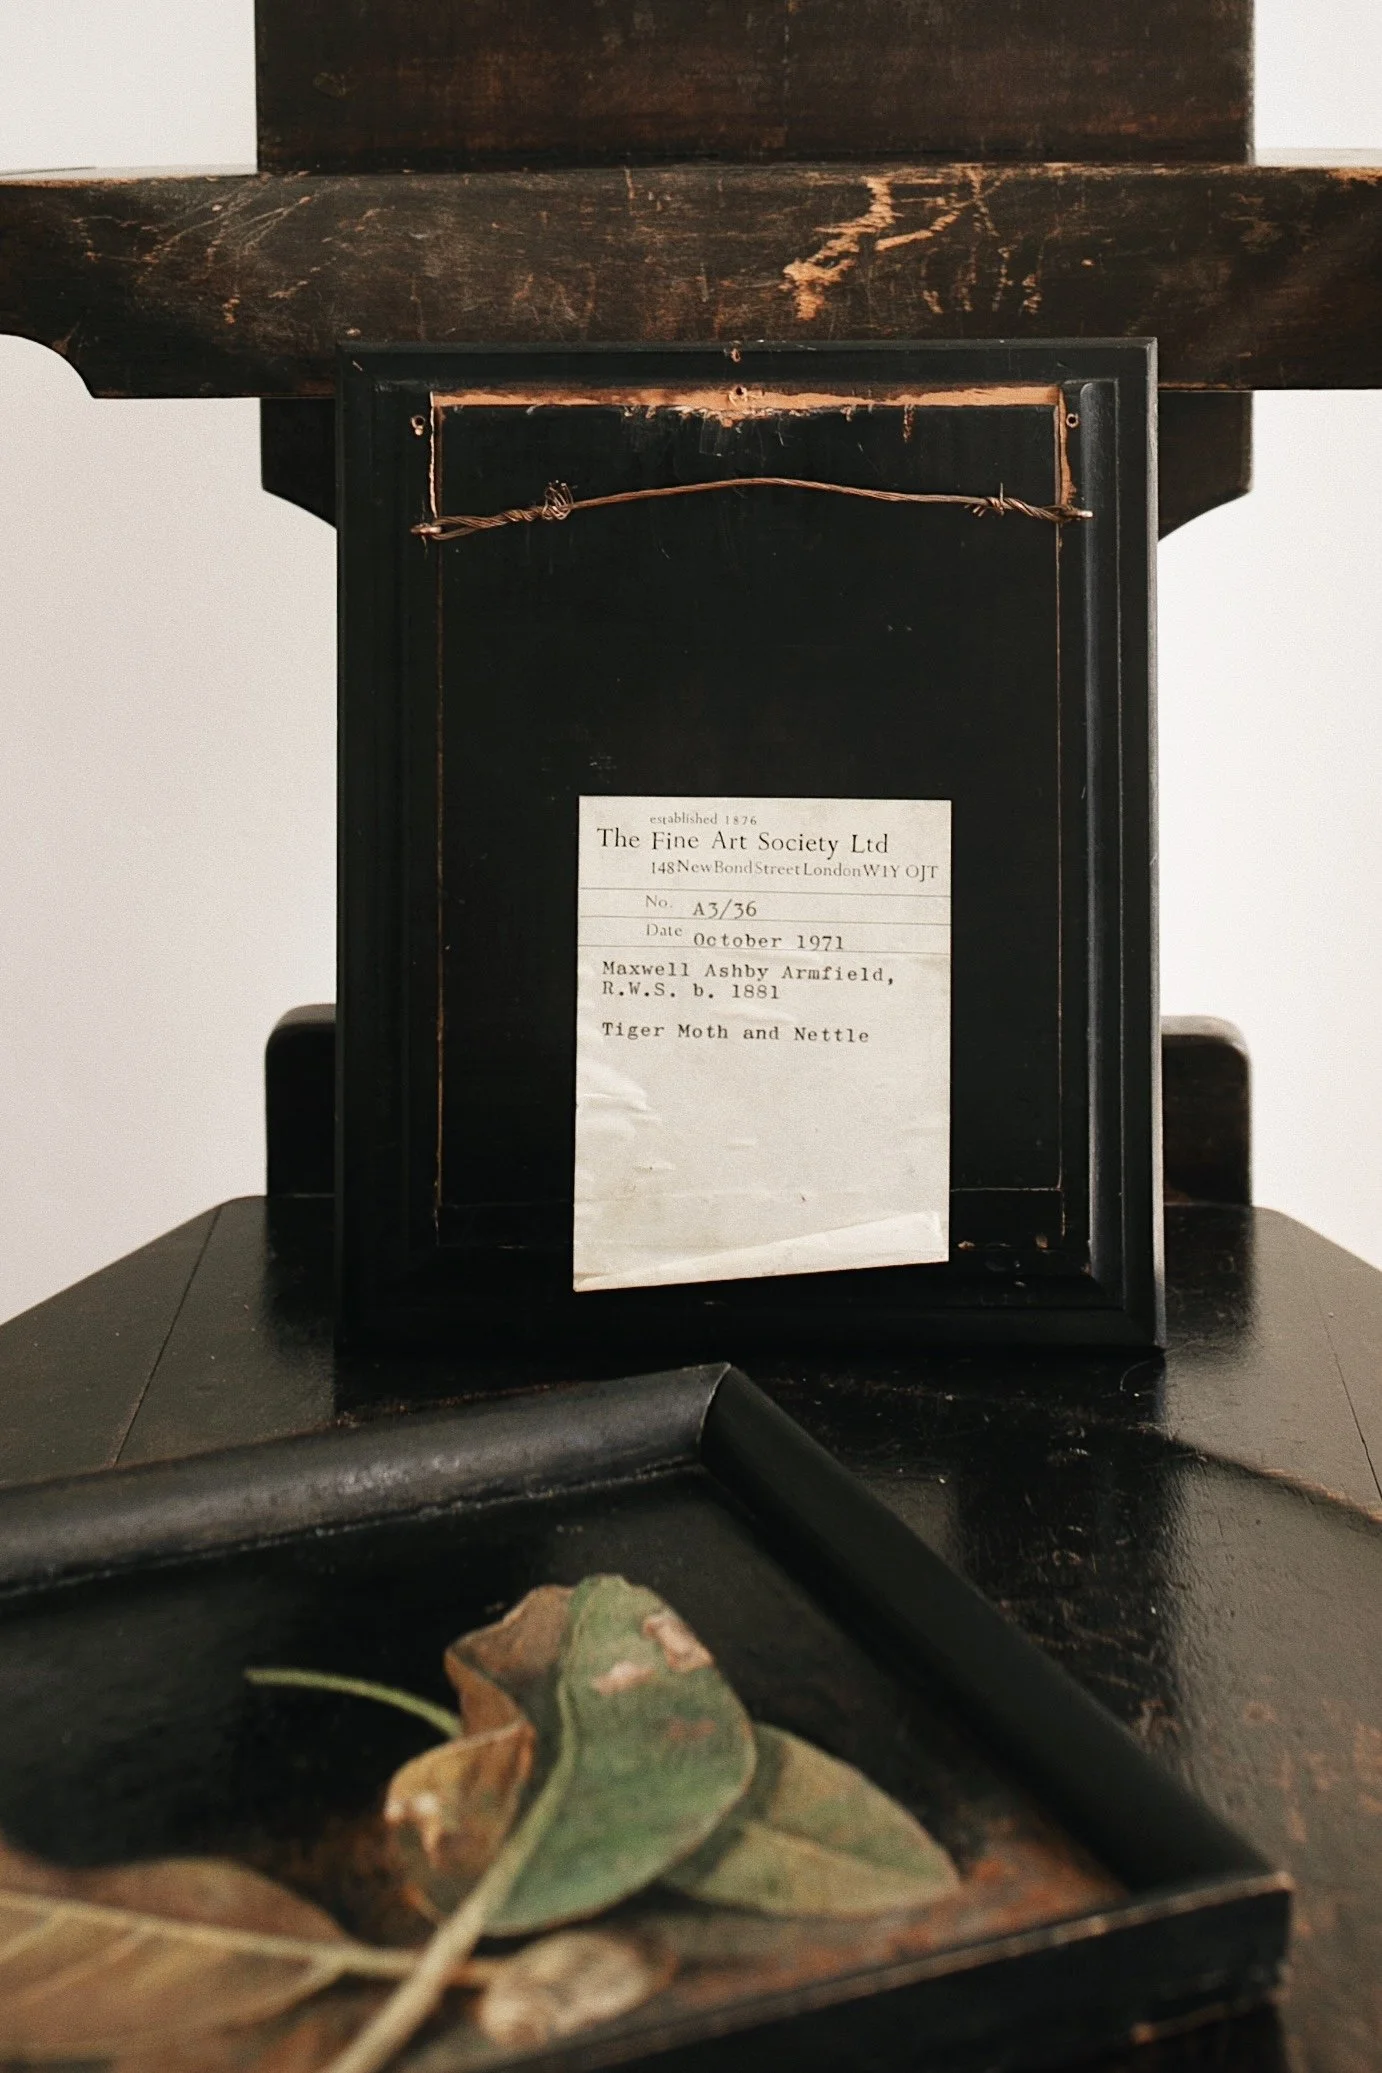 established 1876
The Fine Art Society Ltd
148 New Bond Street London W1Y OJT
No. A3/36
Date October 1971
Maxwell Ashby Armfield,
R.W.S. b. 1881
Tiger Moth and Nettle